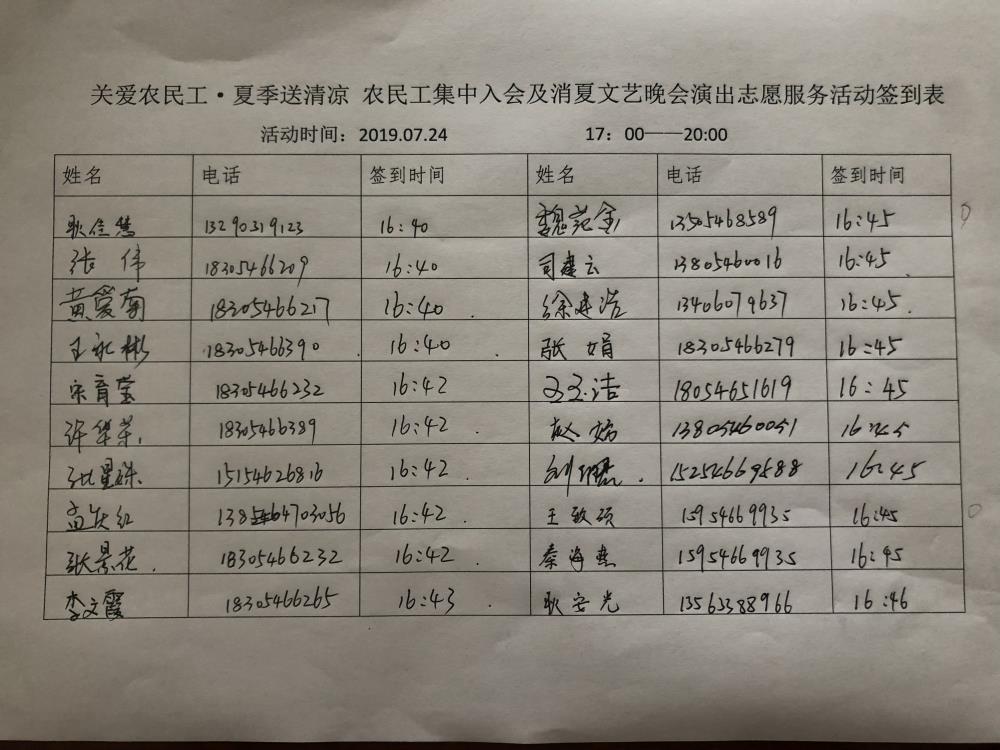 关爱农民工·夏季送清凉 农民工集中入会及消夏文艺晚会演出志愿服务活动签到表
活动时间：2019.07.24 17：00——20:00
姓名 电话 签到时间 姓名 电话 签到时间
耿佳慧 13290319123 16:40 魏范金 13505468589 16:45
张伟 18305466209 16:40 司建云 13805460016 16:45
黄爱菊 18305466217 16:40 徐建浩 13406079637 16:45
王永彬 18305466390 16:40 张娟 18305466279 16:45
宋育莹 18305466232 16:42 王玉洁 18054651619 16:45
许华荣 18305466389 16:42 赵娟 13805460051 16:45
张星珠 15154626816 16:42 刘 15254669588 16:45
孟庆红 16:42 王致硕 15954669935 16:45
张景花 18305466232 16:42 秦海燕 15954669935 16:45
李文霞 18305466265 16:43 耿安光 13563388966 16:46